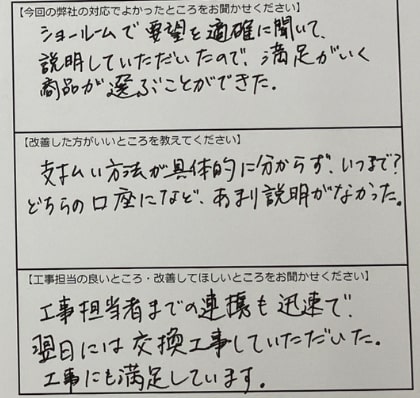 【今回の弊社の対応でよかったところをお聞かせください】
ショールームで要望を適確に聞いて、
説明していただいたので、満足がいく
商品が選ぶことができた。
【改善した方がいいところを教えてください】
支払い方法が具体的に分からず、いつまで?
どちらの口座になど、あまり説明がなかった。
【工事担当の良いところ・改善してほしいところをお聞かせください】
工事担当者までの連携も迅速で、
翌日には交換工事していただいた。
工事にも満足しています。